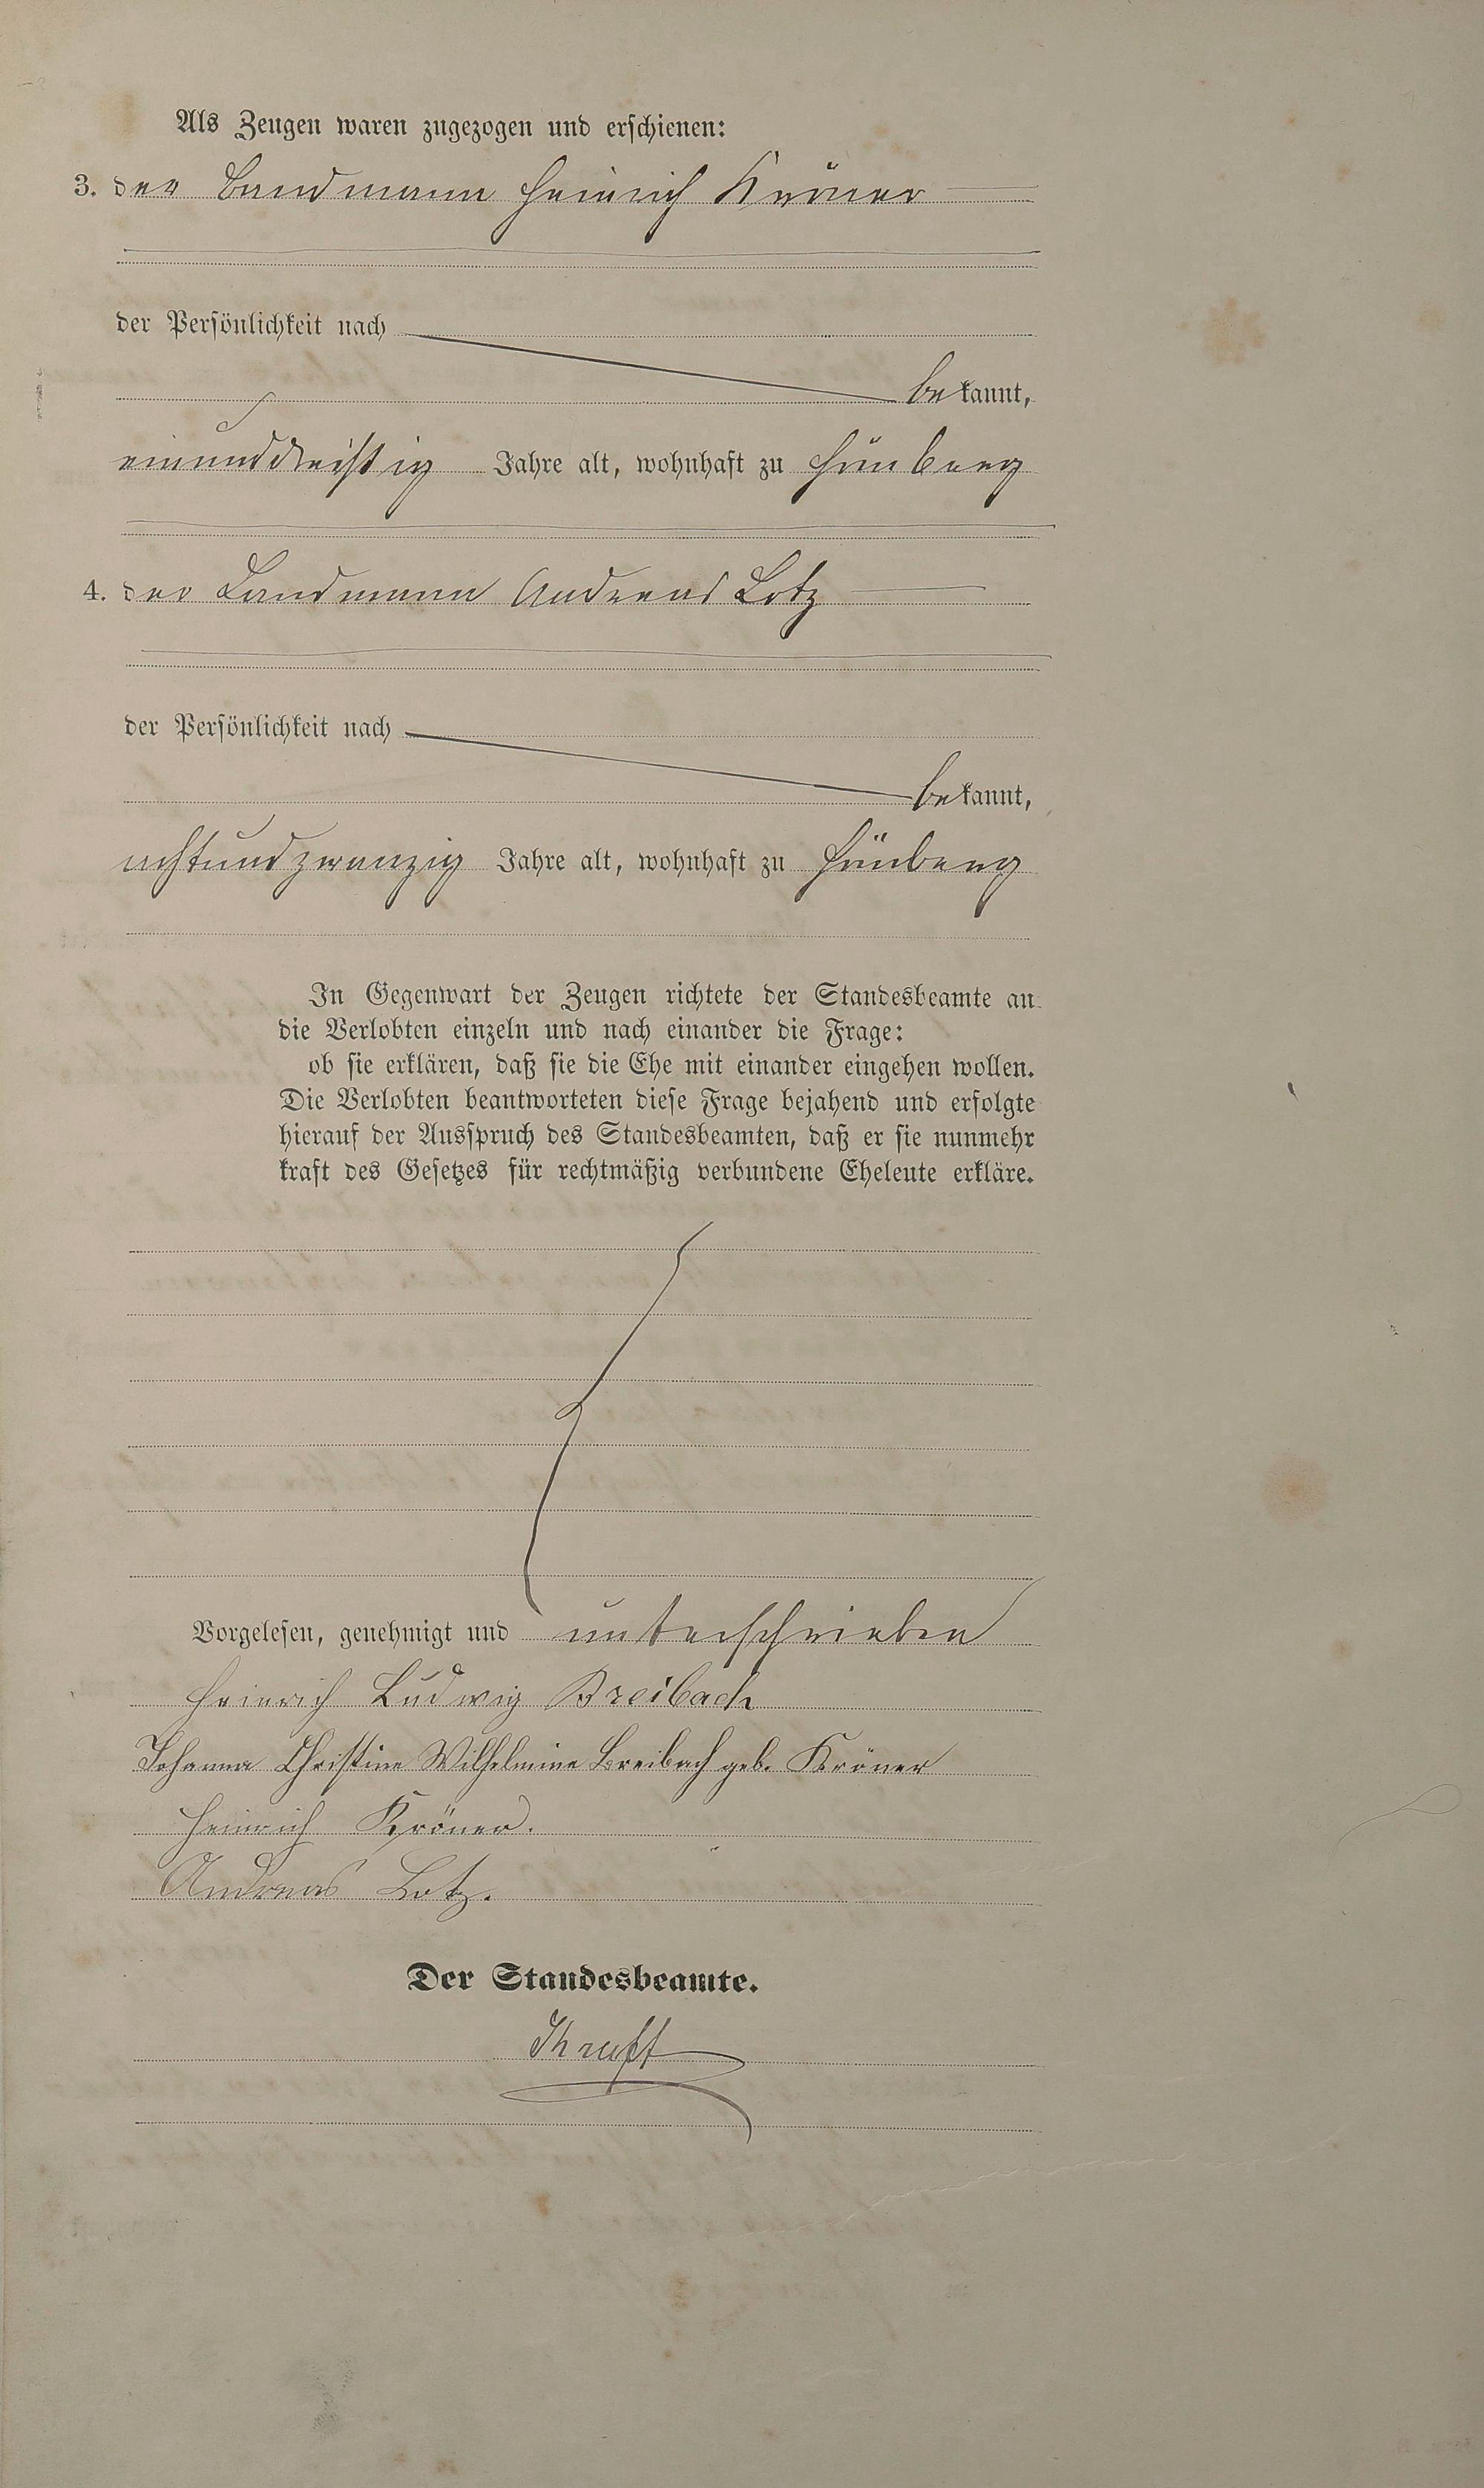 Als Zeugen waren zugezogen und erschienen:
3. der Landmann Heinrich Kröner
der Persönlichkeit nach
bekannt,
einunddreißig Jahre alt, wohnhaft zu
4. der Landmann Andreas Lotz
der Persönlichkeit nach
bekannt,
achtundzwanzig Jahre alt, wohnhaft zu
In Gegenwart der Zeugen richtete der Standesbeamte an
die Verlobten einzeln und nach einander die Frage:
ob sie erklären, daß sie die Ehe mit einander eingehen wollen.
Die Verlobten beantworteten diese Frage bejahend und erfolgte
hierauf der Ausspruch des Standesbeamten, daß er sie nunmehr
kraft des Gesetzes für rechtmäßig verbundene Eheleute erkläre.
Vorgelesen, genehmigt und unterschrieben
Heinrich Ludwig Breibach
Johanna Christine Wilhelmine Breibach geb. Kröner
Heinrich Kröner.
Andreas Lotz.
Der Standesbeamte.